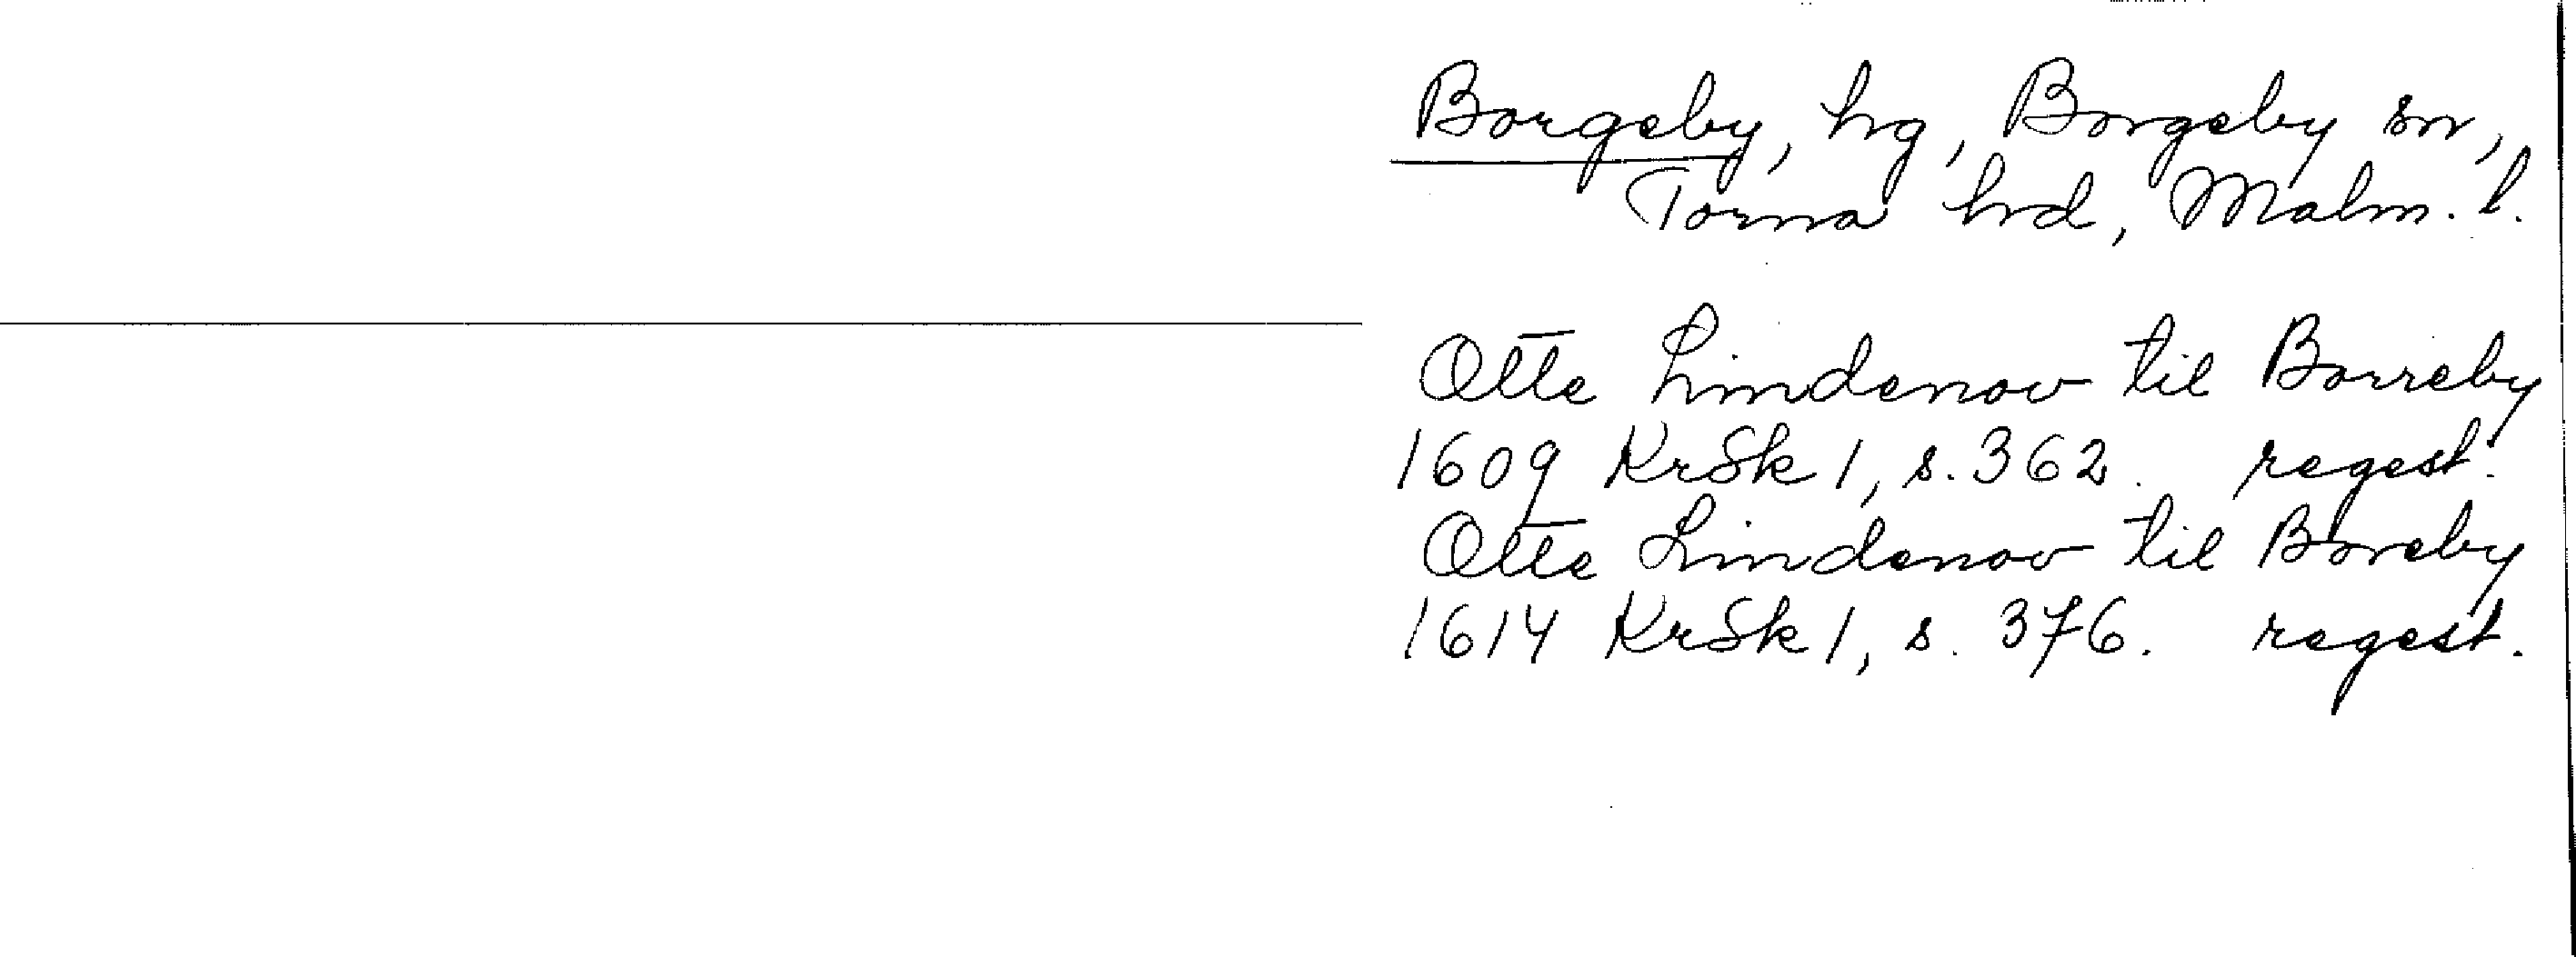 Borgeby, hg, Borgeby sn,
Torna hrd, Malm. l.
Otte Lindenov til Borreby
1609 KrSk 1, s. 362. regest.
Otte Lindenov til Boreby
1614 KrSk 1, s. 376. regest.